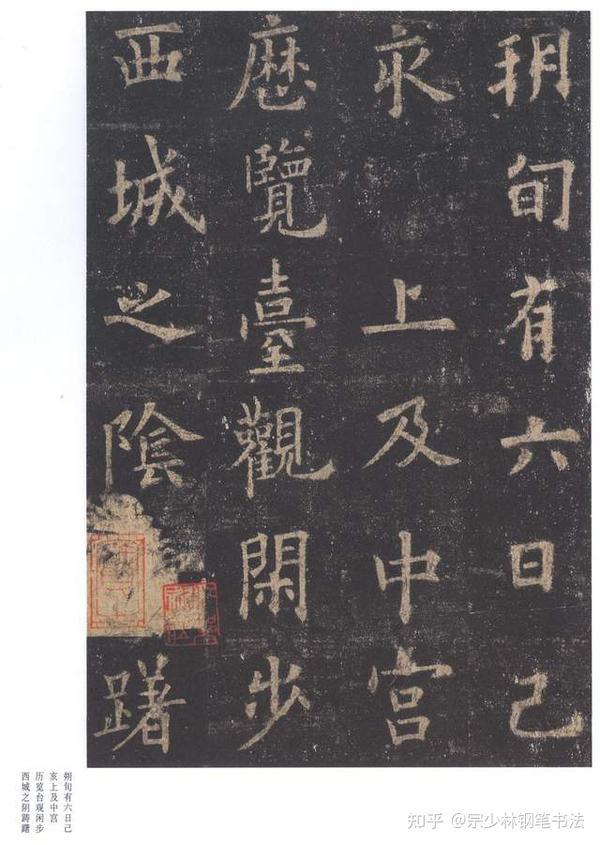 朔旬有六日己
亥上及中宫
歷覽臺觀閑步
西城之陰躇
朔旬有六日己
亥上及中宫
历览台观闲步
西城之阴踌躇
知乎 @宗少林钢笔书法